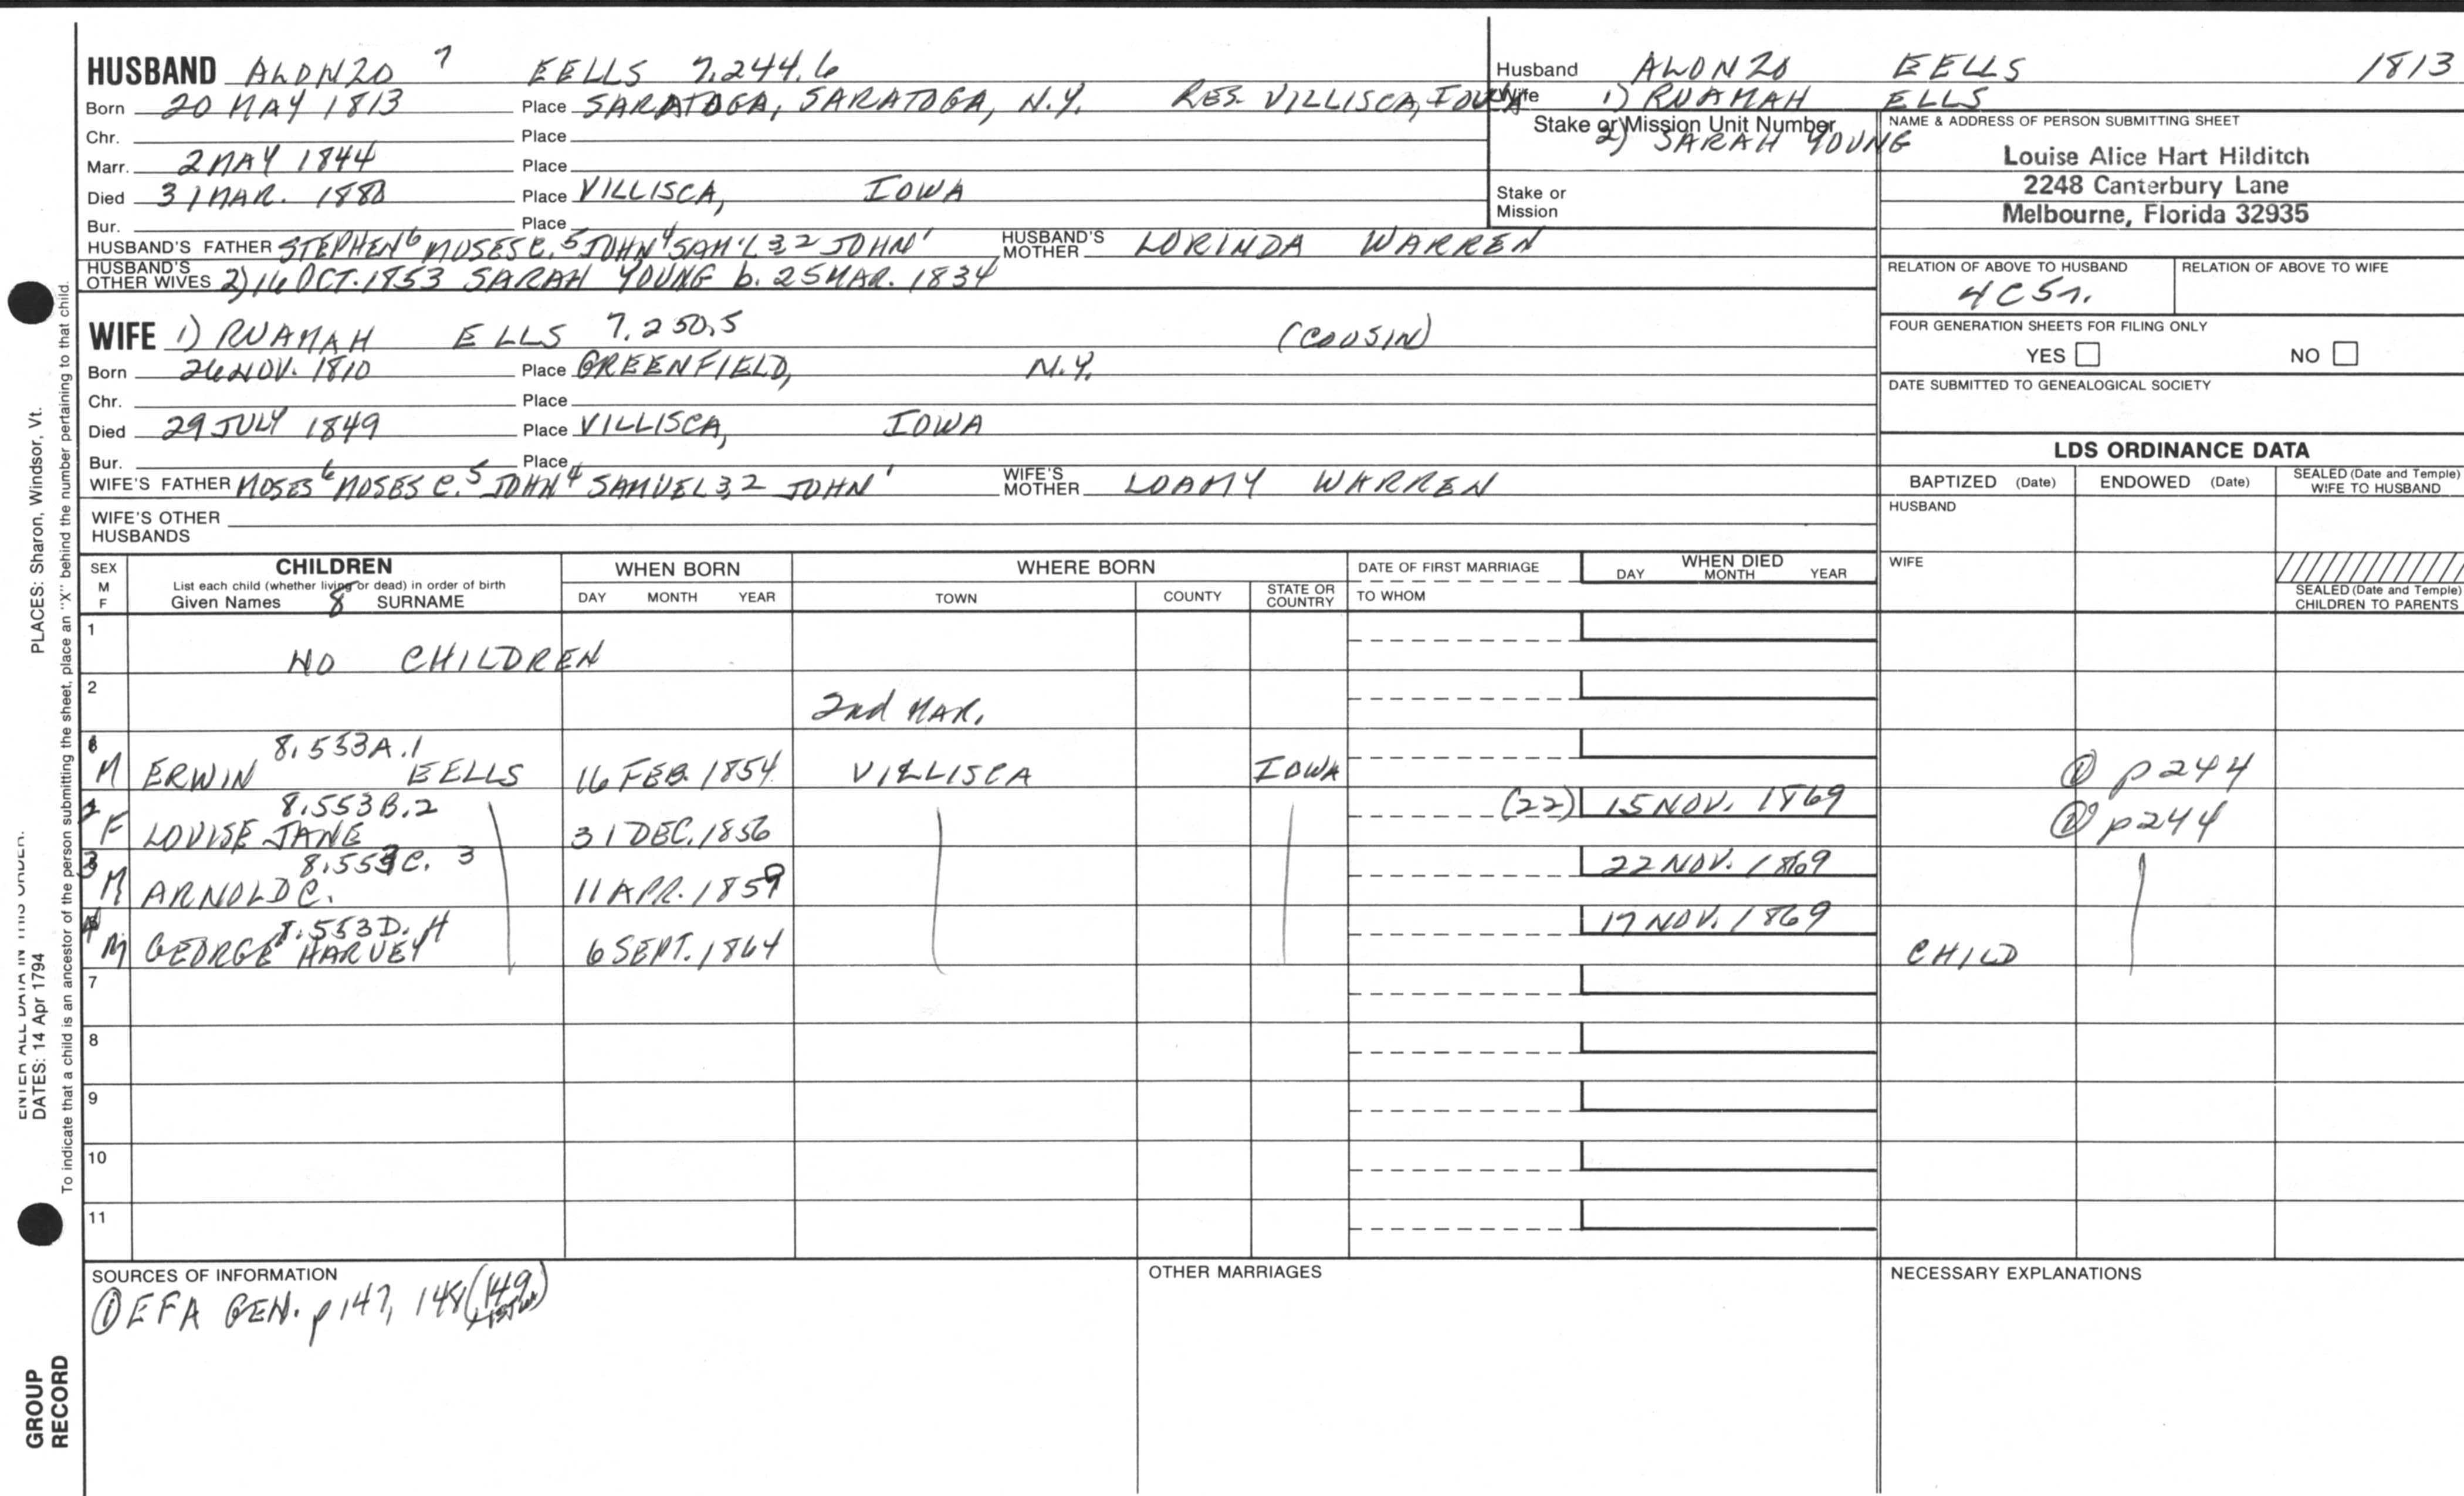 HUSBAND ALONZO 7 EELLS 7.244.6
Born 20 MAY 1813 Place SARATOGA, SARATOGA, N.Y. RES. VILLISCA, IOWA
Chr. Place
Marr. 2 MAY 1844 Place
Died 31 MAR. 1880 Place VILLISCA, IOWA
Bur. Place
HUSBAND'S FATHER STEPHEN 6 MOSES C. 5 JOHN 4 SAM'L 3,2 JOHN 1 HUSBAND'S MOTHER LORINDA WARREN
HUSBAND'S OTHER WIVES 2) 16 OCT. 1853 SARAH YOUNG b. 25 MAR. 1834
Husband ALONZO EELLS 1813
Wife 1) RUAMAH ELLS
Stake or Mission Unit Number
2) SARAH YOUNG
Stake or
Mission
NAME & ADDRESS OF PERSON SUBMITTING SHEET
Louise Alice Hart Hilditch
2248 Canterbury Lane
Melbourne, Florida 32935
RELATION OF ABOVE TO HUSBAND RELATION OF ABOVE TO WIFE
4C5r.
FOUR GENERATION SHEETS FOR FILING ONLY
YES NO
DATE SUBMITTED TO GENEALOGICAL SOCIETY
WIFE 1) RUAMAH ELLS 7.250.5 (COUSIN)
Born 26 NOV. 1810 Place GREENFIELD, N.Y.
Chr. Place
Died 29 JULY 1849 Place VILLISCA, IOWA
Bur. Place
WIFE'S FATHER MOSES 6 MOSES C. 5 JOHN 4 SAMUEL 3,2 JOHN 1 WIFE'S MOTHER LOAMY WARREN
WIFE'S OTHER
HUSBANDS
LDS ORDINANCE DATA
BAPTIZED (Date) ENDOWED (Date) SEALED (Date and Temple) WIFE TO HUSBAND
HUSBAND
WIFE
SEALED (Date and Temple)
CHILDREN TO PARENTS
SEX M F
CHILDREN
List each child (whether living or dead) in order of birth
Given Names 8 SURNAME
WHEN BORN
DAY MONTH YEAR
WHERE BORN
TOWN COUNTY STATE OR COUNTRY
DATE OF FIRST MARRIAGE
TO WHOM
WHEN DIED
DAY MONTH YEAR
1 NO CHILDREN
2 2nd MAR.
8.553A.1
M ERWIN EELLS 16 FEB. 1854 VILLISCA IOWA ① p244
2 8.553B.2 (22) 15 NOV. 1869
F LOUISE JANE 31 DEC. 1856 ① p244
3 8.553C. 3 22 NOV. 1869
M ARNOLD C. 11 APR. 1859
4 8.553D. 4 17 NOV. 1869
M GEORGE HARVEY 6 SEPT. 1864 CHILD
7
8
9
10
11
SOURCES OF INFORMATION
① EFA GEN. p 147, 148 (149
OTHER MARRIAGES
NECESSARY EXPLANATIONS
PLACES: Sharon, Windsor, Vt.
To indicate that a child is an ancestor of the person submitting the sheet, place an "X" behind the number pertaining to that child.
ENTER ALL DATA IN THIS ORDER:
DATES: 14 Apr 1794
GROUP
RECORD